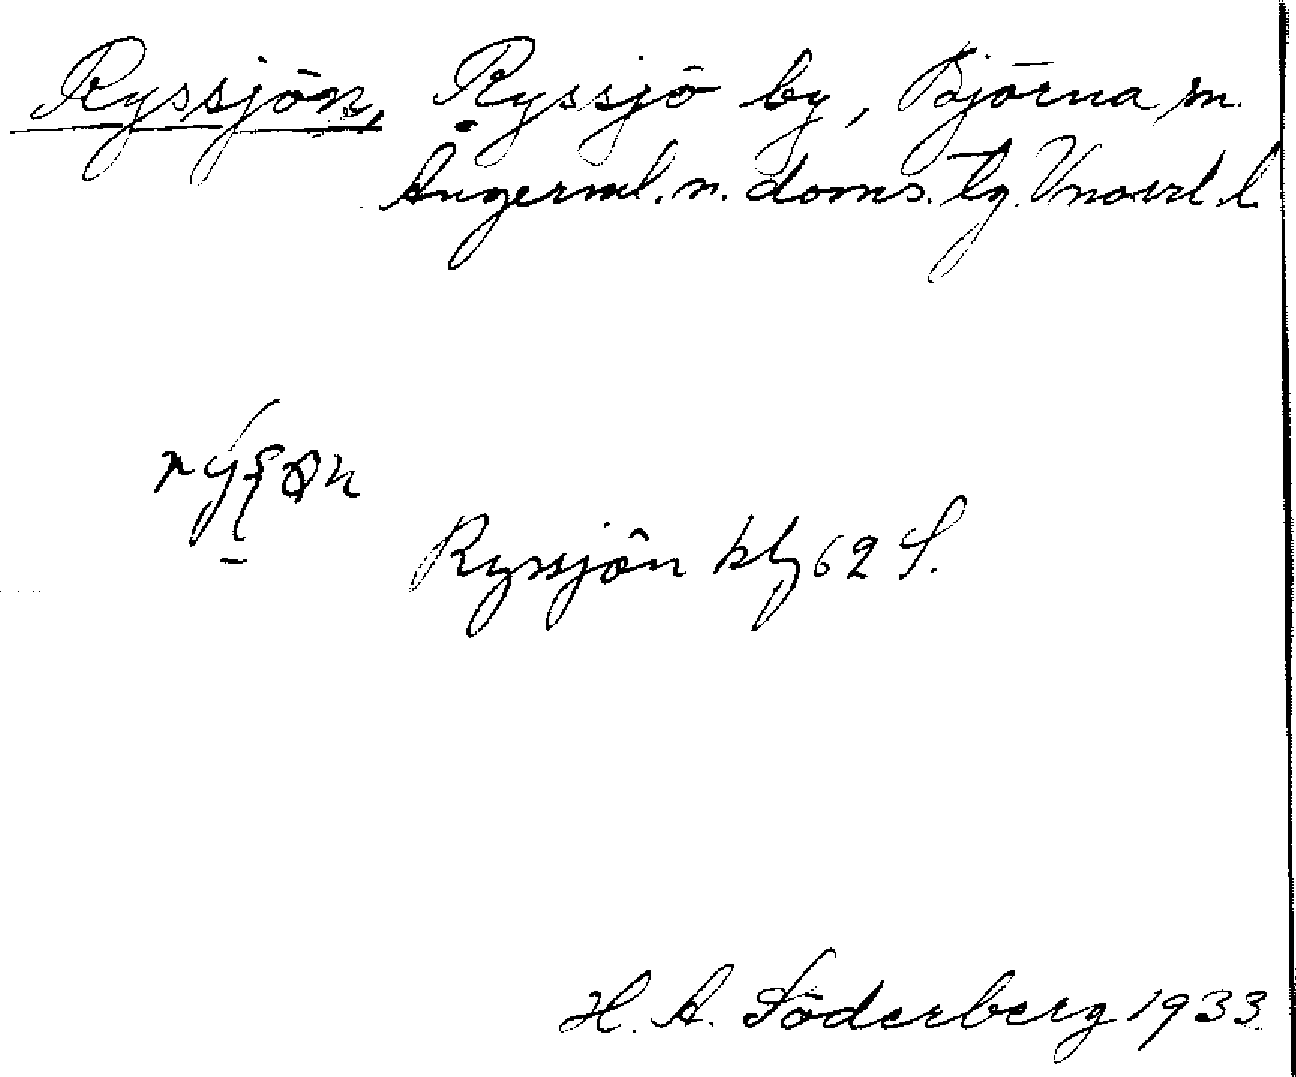 Ryssjön, Ryssjö by, Björna sn.
Ångerml. n. doms. tg. Vnorrl. l.
Ryssjön kbl 62 S.
H. A. Söderberg 1933